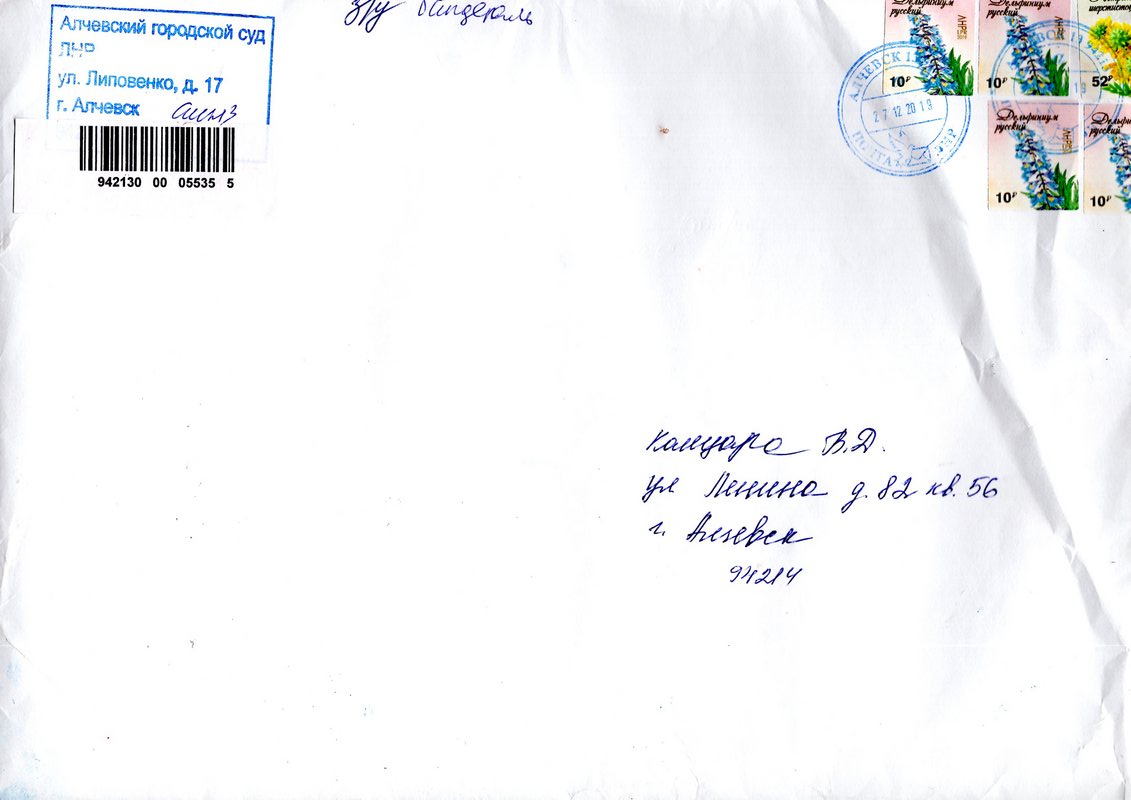 Алчевский городской суд
ЛНР
ул. Липовенко, д. 17
г. Алчевск
942130 00 05535 5
з/у бандероль
Дельфиниум
русский
10₽
Дельфиниум
русский
10₽
52₽
Дельфиниум
русский
10₽
Дельфиниум
русский
10₽
АЛЧЕВСК
27 12 20 19
ПОЧТА ЛНР
В.Д.
ул Ленина д. 82 кв. 56
г. Алчевск
94214